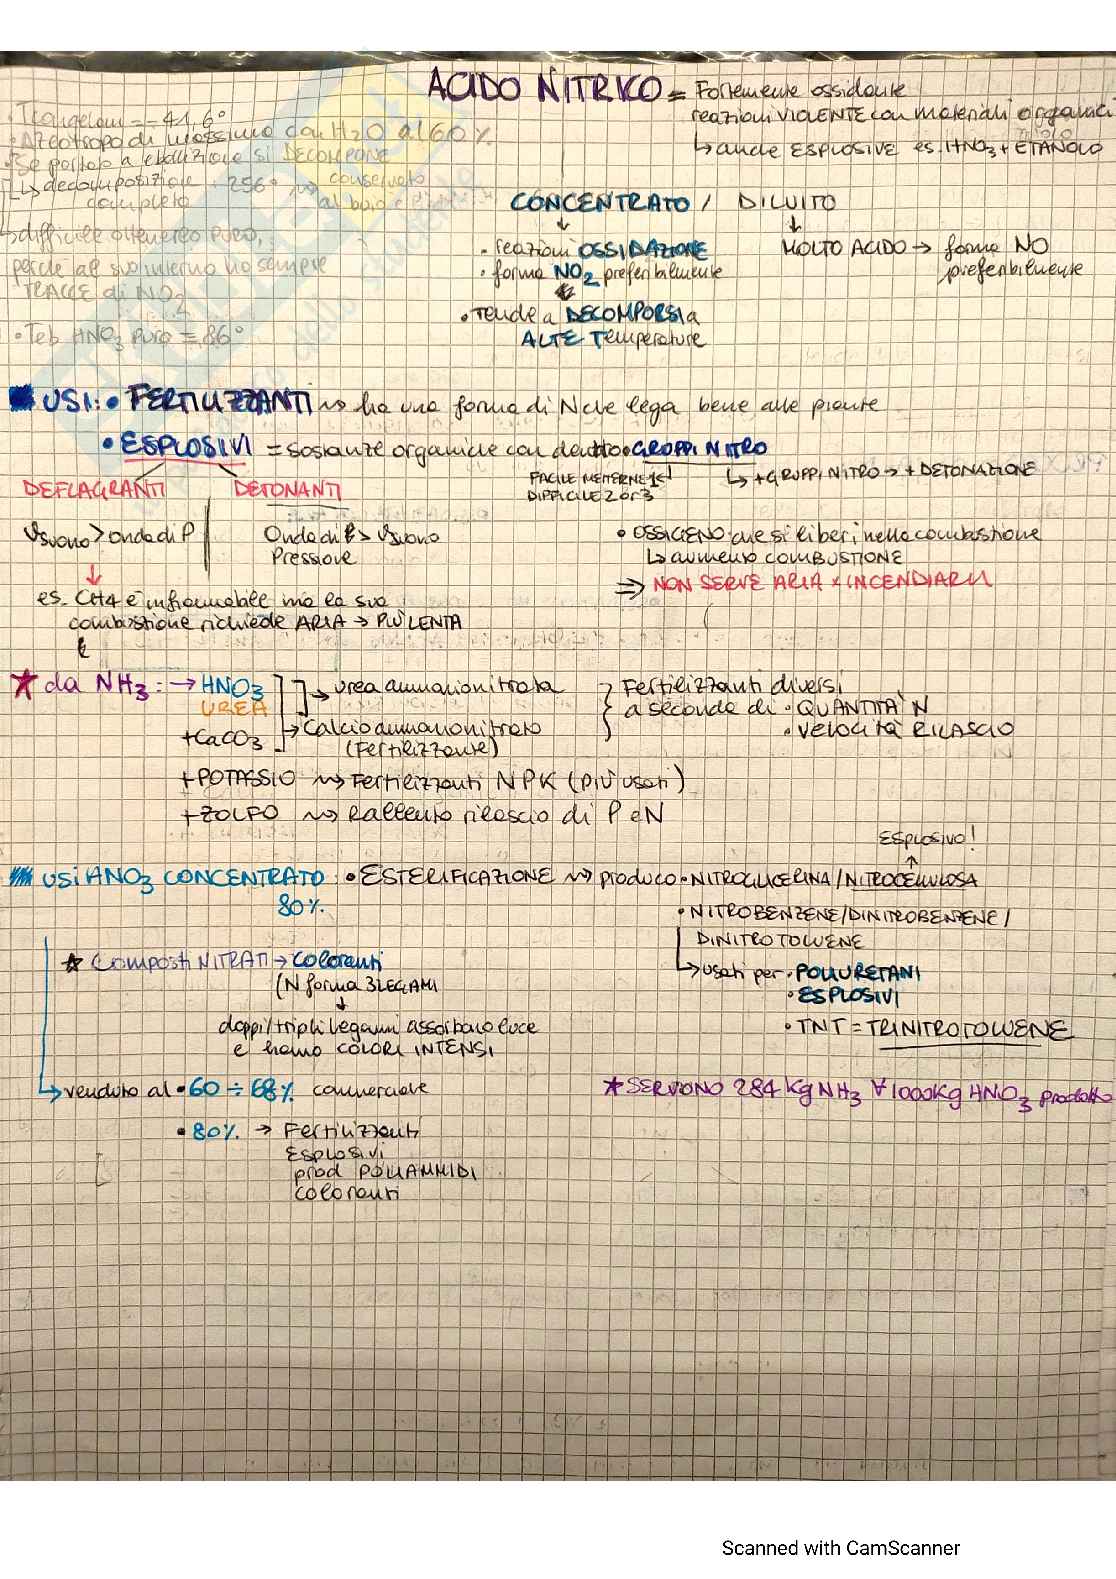 ACIDO NITRICO = Fortemente ossidante
reazioni VIOLENTE con materiali organici
↳ anche ESPLOSIVE es. HNO3 + ETANOLO
• Tcongelam = -41,6°
• Azeotropo di massimo con H2O al 60%
• Se portato a ebollizione si DECOMPONE
↳ decomposizione completa 256° ⇝ conservato al buio
↳ difficile ottenerlo puro,
perché al suo interno ho sempre
TRACCE di NO2
• Teb HNO3 puro = 86°
CONCENTRATO / DILUITO
• reazioni OSSIDAZIONE
• forma NO2 preferibilmente
• Tende a DECOMPORSI a
ALTE Temperature
MOLTO ACIDO → forma NO
preferibilmente
USI: • FERTILIZZANTI ⇝ ha una forma di N che lega bene alle piante
• ESPLOSIVI = sostanze organiche con dentro • GRUPPI NITRO
FACILE METTERNE 1
DIFFICILE 2 o 3
↳ + GRUPPI NITRO → + DETONAZIONE
DEFLAGRANTI DETONANTI
Vsuono > onda di P
Onda di P > Vsuono
Pressione
• OSSIGENO che si liberi nella combustione
↳ aumento COMBUSTIONE
⇒ NON SERVE ARIA x INCENDIARLI
es. CH4 è infiammabile ma la sua
combustione richiede ARIA → PIÙ LENTA
★ da NH3 : → HNO3
UREA
+ CaCO3
→ urea ammonionitrato
→ Calcioammonionitrato
(Fertilizzante)
Fertilizzanti diversi
a seconda di • QUANTITÀ N
• velocità RILASCIO
+ POTASSIO ⇝ Fertilizzanti NPK (più usati)
+ ZOLFO ⇝ Rallento rilascio di P e N
ESPLOSIVO!
USI HNO3 CONCENTRATO : • ESTERIFICAZIONE ⇝ produco • NITROGLICERINA / NITROCELLULOSA
80%
• NITROBENZENE / DINITROBENZENE /
DINITROTOLUENE
↳ usati per • POLIURETANI
• ESPLOSIVI
• TNT = TRINITROTOLUENE
★ COMPOSTI NITRATI → coloranti
(N forma 3 LEGAMI
doppi/tripli legami assorbono luce
e hanno COLORI INTENSI
↳ venduto al • 60 ÷ 68% commerciale
• 80% → Fertilizzanti
Esplosivi
prod POLIAMMIDI
coloranti
★ SERVONO 284 kg NH3 ∀ 1000 kg HNO3 prodotto
Scanned with CamScanner